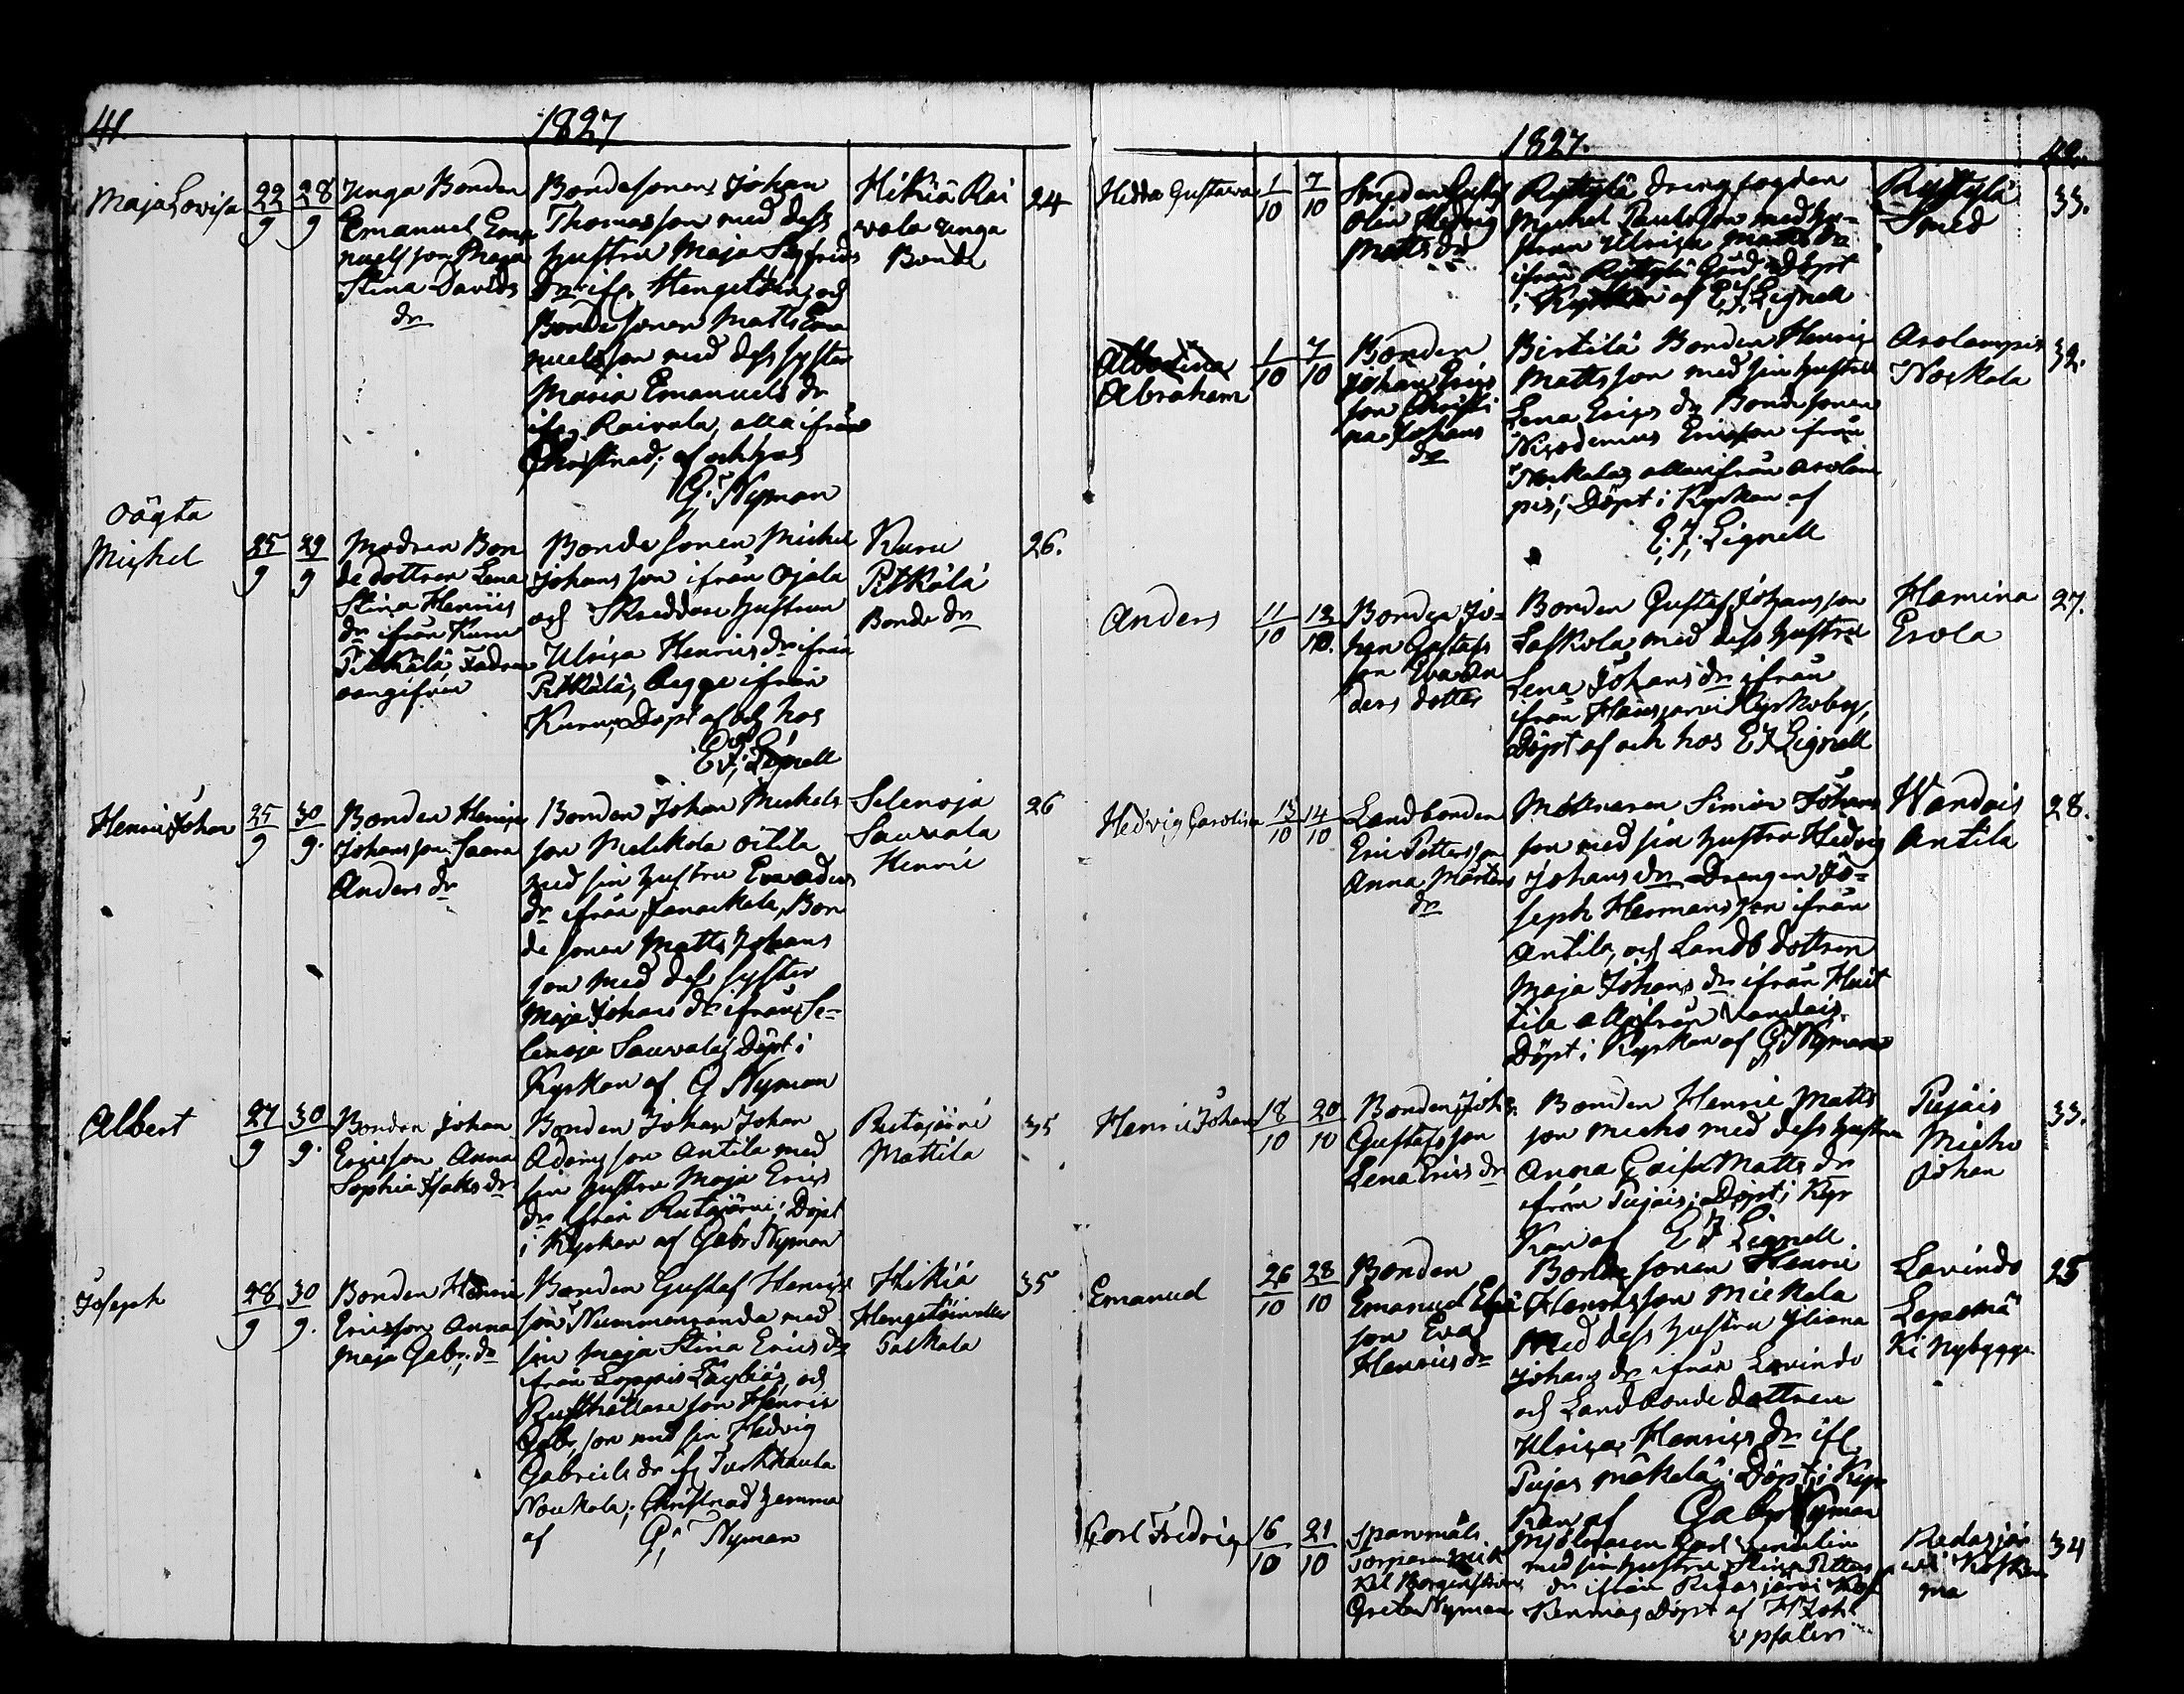 41.
1827
Maja Lovisa
22/9
28/9
Unga Bonden
Emanuel Ema
nuelsson Maja
Stina Davids
dr
Bondesonen Johan
Thomasson med dess
hustru Maja Sigfrids
dr ifr. Hengethen, och
Bondesonen Matts Ema
nuelsson med dess syster
Maria Emanuels dr
ifr. Raivala, alla ifrån
Thusstrad; af och hos
G. Nyman
Hikiä Rai
vala unga
Bonde
24
oägta
Michel
25/9
29/9
Modren Bon
dedottren Lena
Stina Henrics
dr ifrån Kuru
Pitkälä Fadren
oangifven
Bondesonen Michel
Johansson ifrån Ojala
och Skreddare hustrun
Ulrica Henrics dr ifrån
Pitkälä, begge ifrån
Kuru, Döpt af och hos
E. J. Lignell
Kuru
Pitkälä
Bonde dr
26.
Henric Johan
25/9
30/9.
Bonden Henric
Johansson Saara
Anders dr
Bonden Johan Michels
son Melikola Oitila
med sin hustru Eva Adams
dr ifrån Janackala, Bon
de sonen Matts Johans
son med dess syster
Maja Johans dr ifrån Se-
lenoja Sauvala; Döpt i
Kyrkan af G Nyman
Selenoja
Sauvala
Henric
26
Albert
27/9
30/9.
Bonden Johan
Ericsson Anna
Sophia Isaks dr
Bonden Johan Johan
Adamsson Antila med
sin hustru Maja Erics
dr ifrån Rutajärvi; Döpt
i Kyrkan af Gabr Nyman
Rutajärvi
Mattila
35
Joseph
28/9
30/9.
Bonden Henric
Ericsson Anna
Maja Gabr. dr
Bonden Gustaf Henrics
son Nummenranda med
sin Maja Stina Erics dr
ifrån Loppis Läyliäis, och
Rusthållare son Henric
Gabr. son med sin Hedvig
Gabriels dr ifr. Turkhauta
Noukala; Christnad hemma
af G. Nyman
Hikiä
Hengetöin eller
Saskala
35
1827.
42.
Hedda Gustava
1/10
7/10
Smeden Gustaf
Olin Hedvig
Matts dr
Ryttylä Drengfogden
Michel Paulsson med hu-
strun Ulrica Matts dr
ifrån Ryttylä Gård Döpt
i Kyrkan af E. J. Lignell
Ryttylä
Smed
33.
Albertina
Abraham
1/10
7/10
Bonden
Johan Erics
son Christi
na Johans
dr
Birtilä Bonden Henric
Mattsson med sin hustru
Lena Erics dr Bondesonen
Nicodemus Ericsson ifrån
Noskala, alla ifrån Arolam
pis; Döpt i Kyrkan af
E. J. Lignell
Arolampis
Noskala
32.
Anders
11/10
12/10.
Bonden Jo-
han Gustafs
son Eva An
ders dotter
Bonden Gustaf Johansson
Laskola med dess hustru
Lena Johans dr ifrån
ifrån Hausjärvi Kyrkoby,
Döpt af och hos E J Lignell
Hamina
Erola
27.
Hedvig Carolina
13/10
14/10
Landbonden
Eric Pettersson
Anna Mårtens
dr
Mölnaren Simon Johans
son med sin hustru Hedvig
Johans dr Drengen Jo-
seph Hermansson ifrån
Antila, och Landb dottren
Maja Johans dr ifrån Heit
tila alla ifrån Vandais
Döpt i Kyrkan af G Nyman
Wandais
Antila
28.
Henric Johan
18/10
20/10
Bonden Joh.
Gustafsson
Lena Erics dr
Bonden Henric Matts
son Micho med dess hustru
Anna Caisa Matts dr
ifrån Pujais; Döpt i Kyr
kan af E J Lignell
Pujais
Micho
Johan
33.
Emanuel
26/10
28/10
Bonden
Emanuel Elias
son Eva
Henrics dr
Bonde sonen Henric
Henricsson Mickela
med dess hustru Juliana
Johans dr ifrån Lavindo
och Landbonde dottren
Ulrica Henrics dr ifr.
Pujas Mäkelä; Döpt i Kyr
kan af Gabr Nyman
Lavindo
Lepomä
ki Nybygge
25
Carl Fredric
16/10
21/10
Spanmåls
Torparen Mic
kel Borgenström
Greta Nyman
Mjölnaren Carl Vendelin
med sin hustru Stina Petters
dr ifrån Ridasjärvi Kos
kenmaa; Döpt af H Joh
Upfalen
Ridasjär
vi Kosken
ma
34